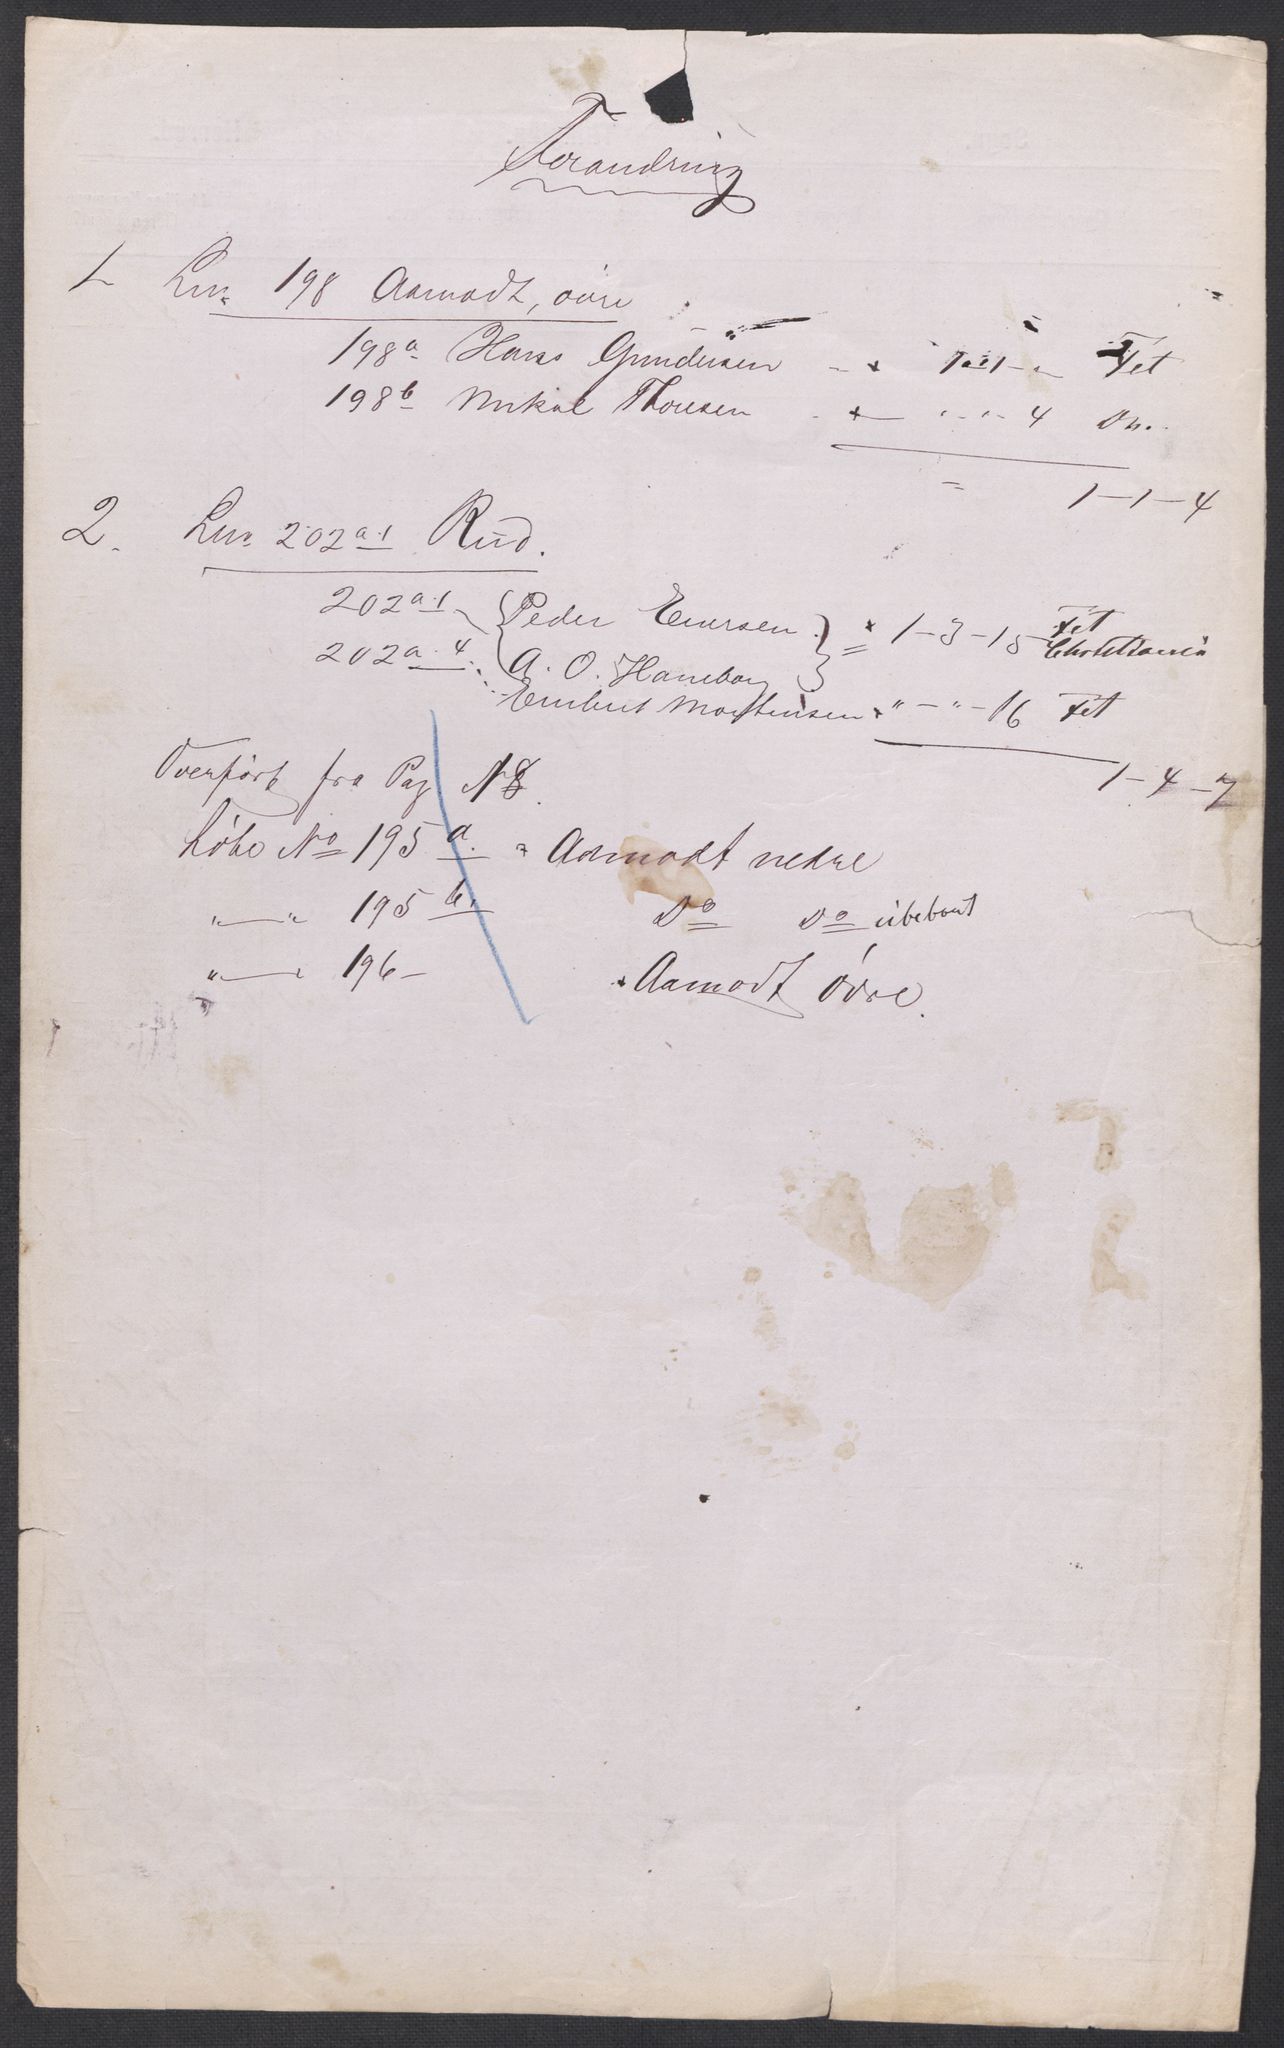 Forandring
1 Lnr. 198 Aamodt, övre
198a Hans Gundersen 1-1-" Fet
198b Mikal Thoresen "-"-4 Do.
= 1-1-4
2. Lnr. 202a1 Rud.
202a.1 {Peder Enersen} = 1-3-15 Fet
202a.4 {A. O. Haneborg} Christiania
Embret Mortensen "-"-16 Fet
1-4-7
Overfört fra Pag N8.
Löbe No 195 a. Aamodt nedre
"—" 195 b. Do Do ubebout
"—" 196- Aamodt övre.